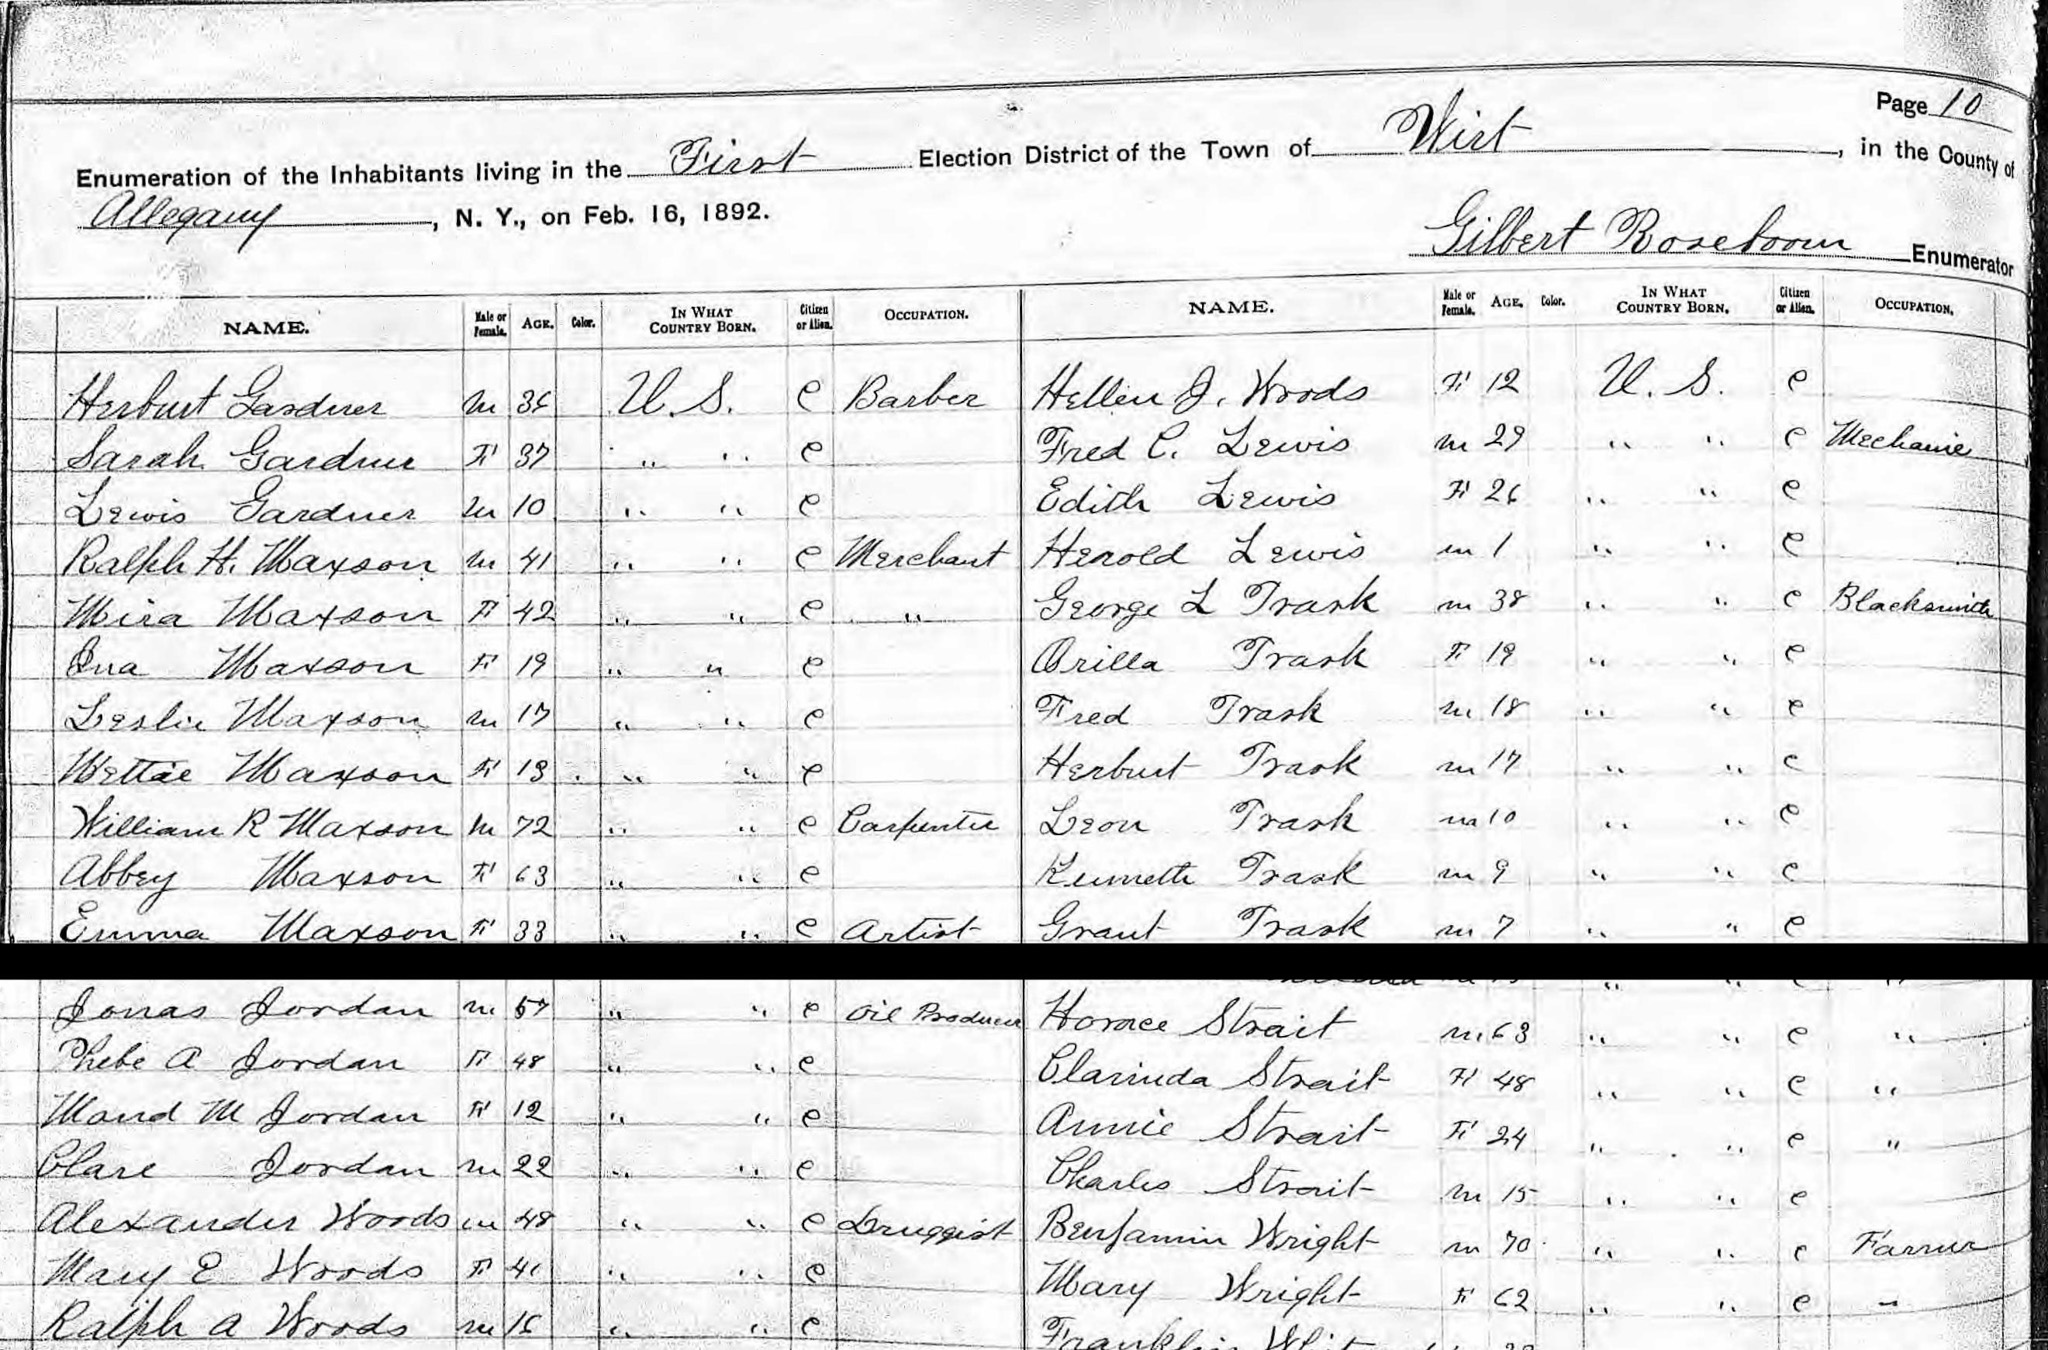 Page 10
Enumeration of the Inhabitants living in the First Election District of the Town of Wirt, in the County of
Allegany, N. Y., on Feb. 16, 1892.
Gilbert Roseboom Enumerator
NAME. Male or Female. AGE. Color. IN WHAT COUNTRY BORN. Citizen or Alien. OCCUPATION. NAME. Male or Female. AGE. Color. IN WHAT COUNTRY BORN. Citizen or Alien. OCCUPATION.
Herburt Gardner m 36 U. S. C Barber Hellen J. Woods F 12 U. S. C
Sarah Gardner F 37 " " C Fred C. Lewis m 29 " " C Mechanic
Lewis Gardner m 10 " " C Edith Lewis F 26 " " C
Ralph H. Maxson m 41 " " C Merchant Herold Lewis m 1 " " C
Mira Maxson F 42 " " C " George L Trask m 38 " " C Blacksmith
Ina Maxson F 19 " " C Orilla Trask F 19 " " C
Leslie Maxson m 17 " " C Fred Trask m 18 " " C
Mettie Maxson F 13 " " C Herburt Trask m 17 " " C
William R Maxson m 72 " " C Carpenter Leon Trask m 10 " " C
Abbey Maxson F 63 " " C Kenneth Trask m 9 " " C
Emma Maxson F 33 " " C Artist Grant Trask m 7 " " C
Jonas Jordan m 57 " " C Oil Producer Horace Strait m 63 " " C "
Phebe A Jordan F 48 " " C Clarinda Strait F 48 " " C "
Maud M Jordan F 12 " " C Annie Strait F 24 " " C "
Clare Jordan m 22 " " C Charles Strait m 15 " " C
Alexander Woods m 48 " " C Druggist Benjamin Wright m 70 " " C Farmer
Mary E Woods F 41 " " C Mary Wright F 62 " " C "
Ralph A Woods m 16 " " C Franklin